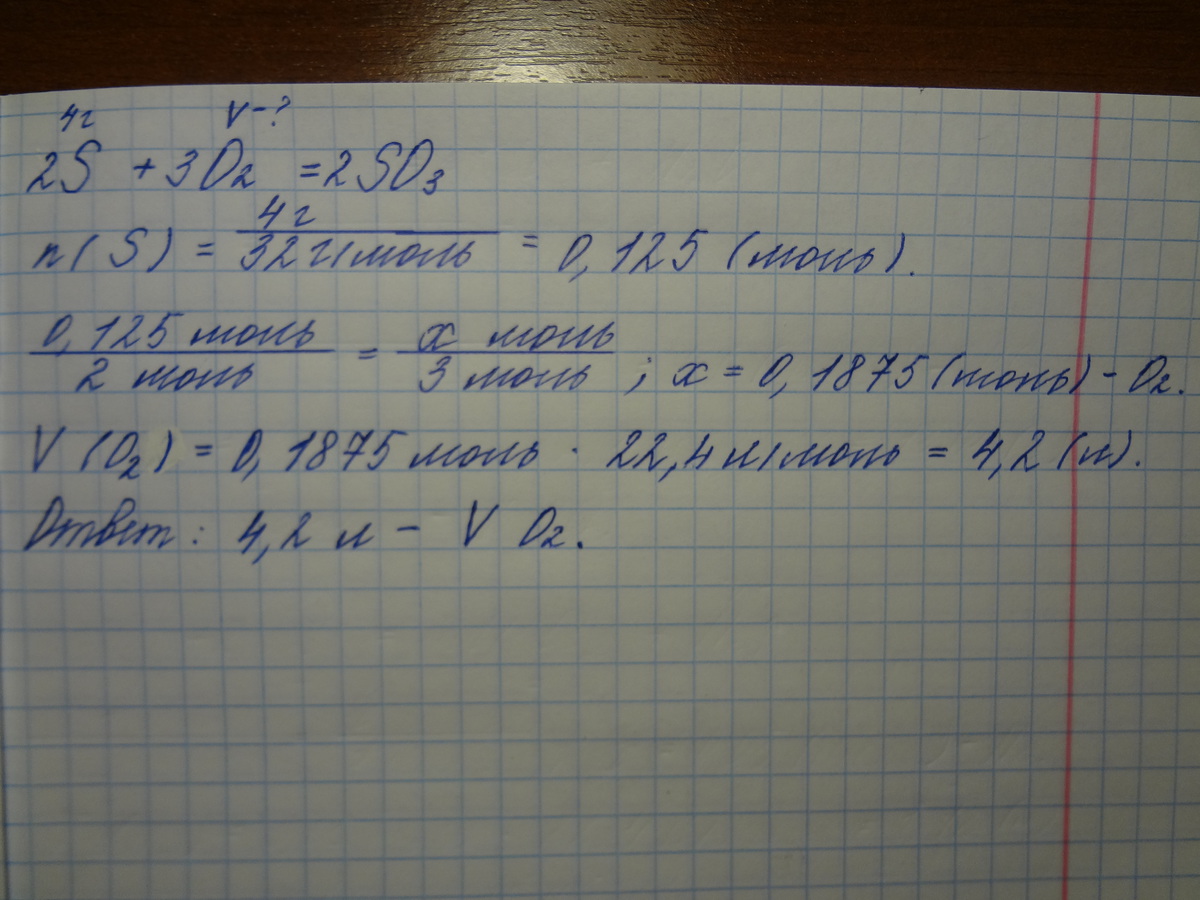 4г V-?
2S + 3O₂ = 2SO₃
n(S) = 4г / 32 г/моль = 0,125 (моль).
0,125 моль / 2 моль = x моль / 3 моль ; x = 0,1875 (моль) - O₂.
V (O₂) = 0,1875 моль · 22,4 л/моль = 4,2 (л).
Ответ: 4,2 л - V O₂.